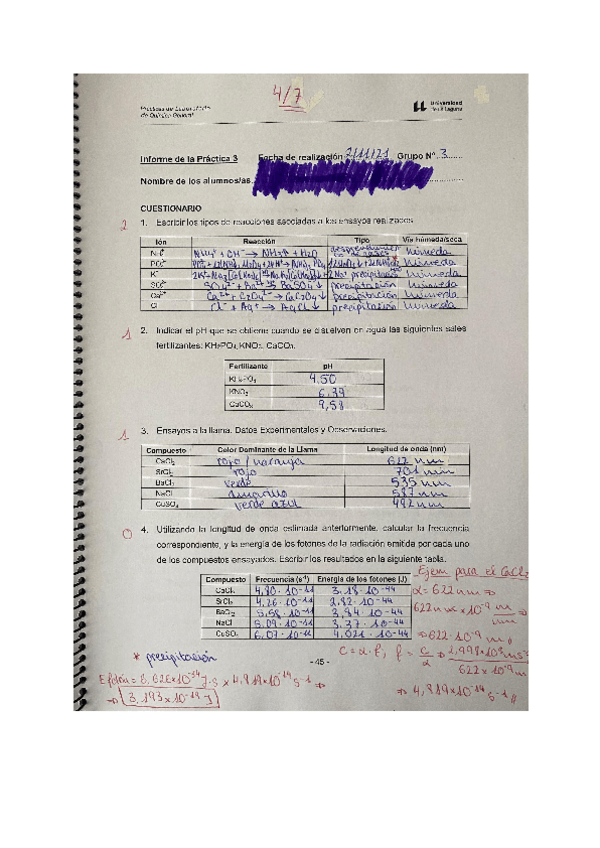 4/7
Prácticas de Laboratorio
de Química General
Universidad
de La Laguna
Informe de la Práctica 3 Fecha de realización Grupo Nº. 3
Nombre de los alumnos/as
CUESTIONARIO
2 1. Escribir los tipos de reacciones asociadas a los ensayos realizados
Ión Reacción Tipo Vía húmeda/seca
NH₄⁺ NH₄⁺ + OH⁻ → NH₃↑ + H₂O desprendimiento de gases húmeda
PO₄³⁻ húmeda
K⁺ precipitac húmeda
SO₄²⁻ SO₄²⁻ + Ba²⁺ → BaSO₄↓ precipitación húmeda
Ca²⁺ Ca²⁺ + C₂O₄²⁻ → CaC₂O₄↓ precipitación húmeda
Cl⁻ Cl⁻ + Ag⁺ → AgCl↓ precipitación húmeda
1 2. Indicar el pH que se obtiene cuando se disuelven en agua las siguientes sales
fertilizantes: KH₂PO₄, KNO₃, CaCO₃.
Fertilizante pH
KH₂PO₄ 4,50
KNO₃ 6,39
CaCO₃ 9,58
1 3. Ensayos a la llama. Datos Experimentales y Observaciones.
Compuesto Color Dominante de la Llama Longitud de onda (nm)
CaCl₂ rojo / naranja 622 nm
SrCl₂ rojo 701 nm
BaCl₂ verde 535 nm
NaCl amarillo 587 nm
CuSO₄ verde azul 492 nm
0 4. Utilizando la longitud de onda estimada anteriormente, calcular la frecuencia
correspondiente, y la energía de los fotones de la radiación emitida por cada uno
de los compuestos ensayados. Escribir los resultados en la siguiente tabla.
Ejem para el CaCl₂
Compuesto Frecuencia (s⁻¹) Energía de los fotones (J)
CaCl₂ 4,80·10⁻¹¹ 3,18·10⁻⁴⁴
SrCl₂ 4,26·10⁻¹¹ 2,82·10⁻⁴⁴
BaCl₂ 5,58·10⁻¹¹ 3,94·10⁻⁴⁴
NaCl 5,09·10⁻¹¹ 3,37·10⁻⁴⁴
CuSO₄ 6,07·10⁻¹¹ 4,021·10⁻⁴⁴
λ = 622 nm ⇒
622 nm × 10⁻⁹ m/nm
⇒ 622·10⁻⁹ m
* precipitación
- 45 -
⇒ 4,819×10¹⁴ s⁻¹
E fotón = 6,626×10⁻³⁴ J·s × 4,819×10¹⁴ s⁻¹ ⇒
⇒ 3,193×10⁻¹⁹ J